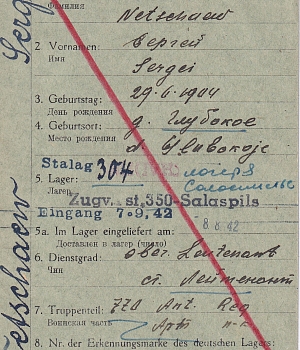 Фамилия
Netschaew
2. Vorname:
Сергей
Имя
Sergei
3. Geburtstag: 29.6.1904
День рождения
4. Geburtsort: д. Глубокое
Место рождения
d. Glubokoje
Stalag 304 лагерь
5. Lager:
Лагерь
Zugv. st.350-Salaspils
Eingang 7.9.42
8/8 42
5a. Im Lager eingeliefert am:
Доставлен в лагерь (число)
6. Dienstgrad: Ober. Leutenant
Чин
ст. Лейтенант
7. Truppenteil: 770 Art. Reg
Воинская часть
8. Nr. der Erkennungsmarke des deutschen Lagers:
Netschaew